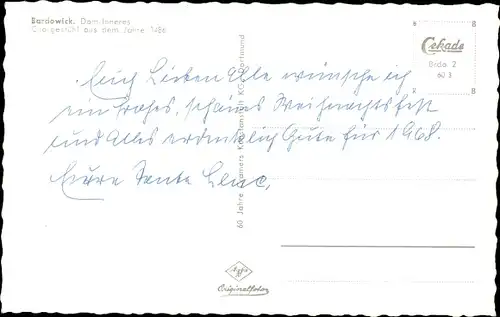 Bardowick. Dom-Inneres
Chorgestühl aus dem Jahre 1486
Cekade
Brdo. 2
60 3
Euch Lieben Alle wünsche ich
ein frohes, schönes Weihnachtsfest
und Alles erdenklich Gute für 1968.
Eure Tante Lene.
60 Jahre Cramers Kunstanstalt KG., Dortmund
Agfa
Originalfoto